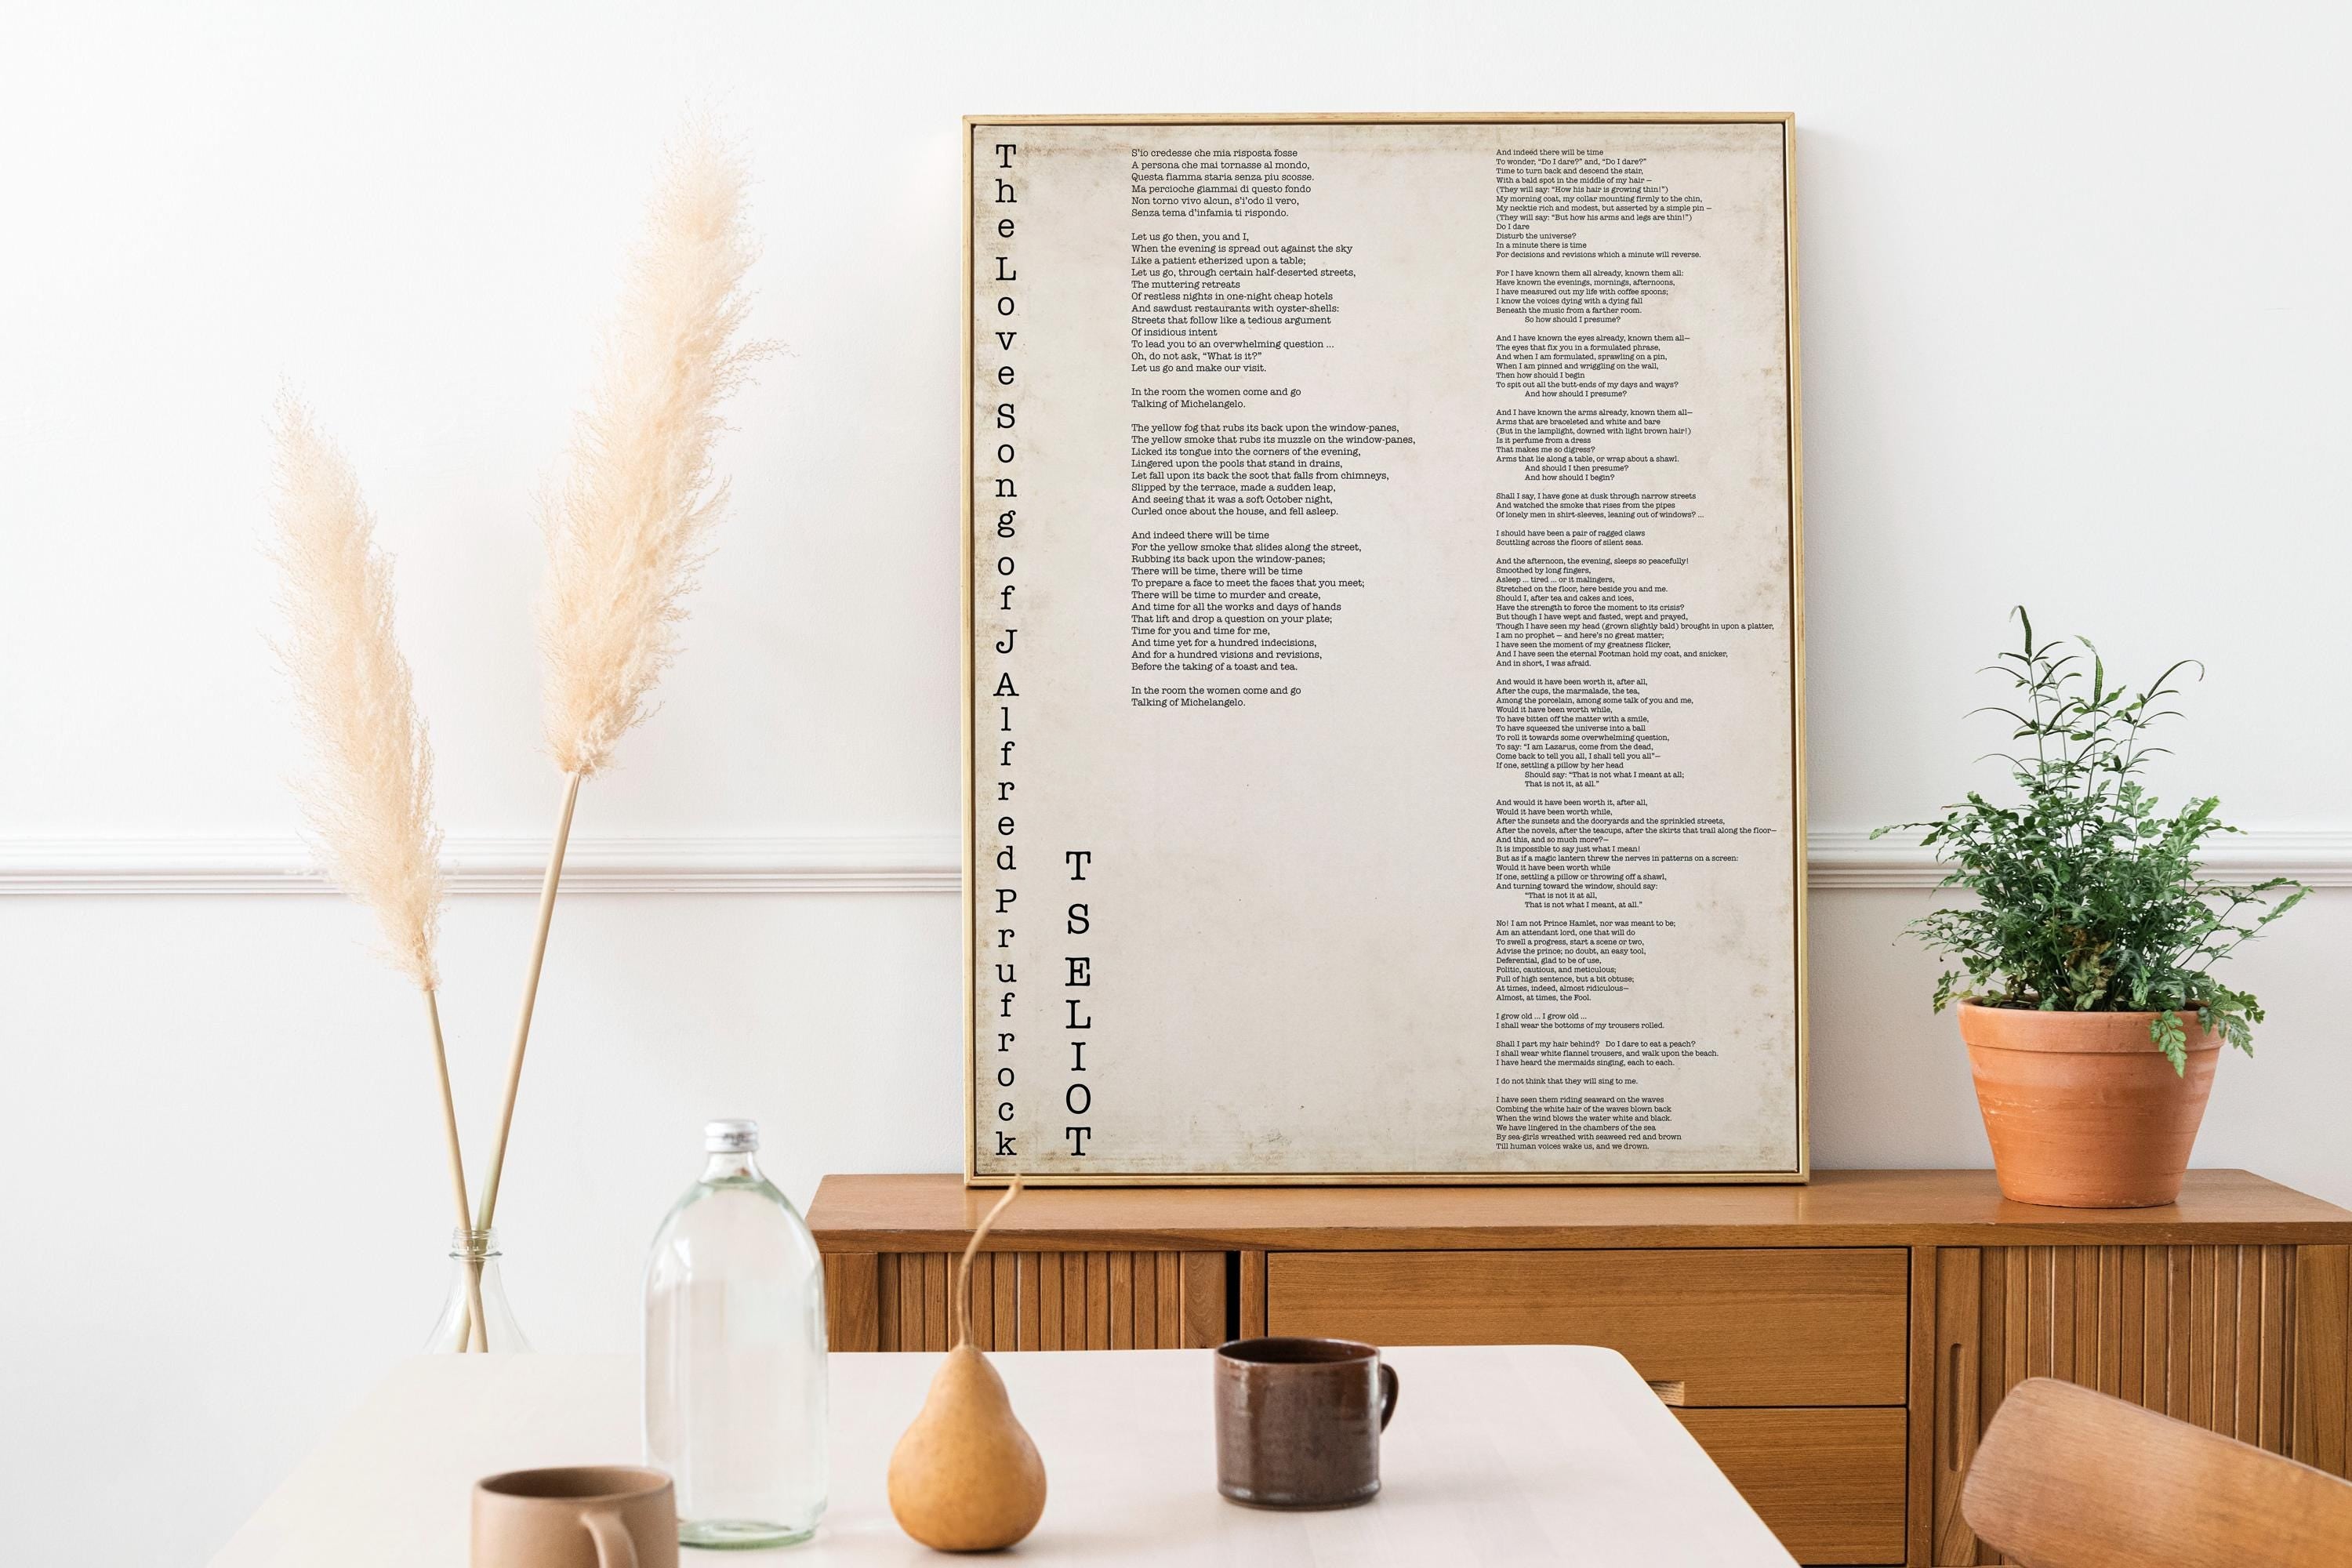 The Love Song of J Alfred Prufrock
T S ELIOT
S'io credesse che mia risposta fosse
A persona che mai tornasse al mondo,
Questa fiamma staria senza piu scosse.
Ma percioche giammai di questo fondo
Non torno vivo alcun, s'i'odo il vero,
Senza tema d'infamia ti rispondo.
Let us go then, you and I,
When the evening is spread out against the sky
Like a patient etherized upon a table;
Let us go, through certain half-deserted streets,
The muttering retreats
Of restless nights in one-night cheap hotels
And sawdust restaurants with oyster-shells:
Streets that follow like a tedious argument
Of insidious intent
To lead you to an overwhelming question ...
Oh, do not ask, “What is it?”
Let us go and make our visit.
In the room the women come and go
Talking of Michelangelo.
The yellow fog that rubs its back upon the window-panes,
The yellow smoke that rubs its muzzle on the window-panes,
Licked its tongue into the corners of the evening,
Lingered upon the pools that stand in drains,
Let fall upon its back the soot that falls from chimneys,
Slipped by the terrace, made a sudden leap,
And seeing that it was a soft October night,
Curled once about the house, and fell asleep.
And indeed there will be time
For the yellow smoke that slides along the street,
Rubbing its back upon the window-panes;
There will be time, there will be time
To prepare a face to meet the faces that you meet;
There will be time to murder and create,
And time for all the works and days of hands
That lift and drop a question on your plate;
Time for you and time for me,
And time yet for a hundred indecisions,
And for a hundred visions and revisions,
Before the taking of a toast and tea.
In the room the women come and go
Talking of Michelangelo.
And indeed there will be time
To wonder, “Do I dare?” and, “Do I dare?”
Time to turn back and descend the stair,
With a bald spot in the middle of my hair —
(They will say: “How his hair is growing thin!”)
My morning coat, my collar mounting firmly to the chin,
My necktie rich and modest, but asserted by a simple pin —
(They will say: “But how his arms and legs are thin!”)
Do I dare
Disturb the universe?
In a minute there is time
For decisions and revisions which a minute will reverse.
For I have known them all already, known them all:
Have known the evenings, mornings, afternoons,
I have measured out my life with coffee spoons;
I know the voices dying with a dying fall
Beneath the music from a farther room.
So how should I presume?
And I have known the eyes already, known them all—
The eyes that fix you in a formulated phrase,
And when I am formulated, sprawling on a pin,
When I am pinned and wriggling on the wall,
Then how should I begin
To spit out all the butt-ends of my days and ways?
And how should I presume?
And I have known the arms already, known them all—
Arms that are braceleted and white and bare
(But in the lamplight, downed with light brown hair!)
Is it perfume from a dress
That makes me so digress?
Arms that lie along a table, or wrap about a shawl.
And should I then presume?
And how should I begin?
Shall I say, I have gone at dusk through narrow streets
And watched the smoke that rises from the pipes
Of lonely men in shirt-sleeves, leaning out of windows? ...
I should have been a pair of ragged claws
Scuttling across the floors of silent seas.
And the afternoon, the evening, sleeps so peacefully!
Smoothed by long fingers,
Asleep ... tired ... or it malingers,
Stretched on the floor, here beside you and me.
Should I, after tea and cakes and ices,
Have the strength to force the moment to its crisis?
But though I have wept and fasted, wept and prayed,
Though I have seen my head (grown slightly bald) brought in upon a platter,
I am no prophet — and here's no great matter;
I have seen the moment of my greatness flicker,
And I have seen the eternal Footman hold my coat, and snicker,
And in short, I was afraid.
And would it have been worth it, after all,
After the cups, the marmalade, the tea,
Among the porcelain, among some talk of you and me,
Would it have been worth while,
To have bitten off the matter with a smile,
To have squeezed the universe into a ball
To roll it towards some overwhelming question,
To say: “I am Lazarus, come from the dead,
Come back to tell you all, I shall tell you all”—
If one, settling a pillow by her head
Should say: “That is not what I meant at all;
That is not it, at all.”
And would it have been worth it, after all,
Would it have been worth while,
After the sunsets and the dooryards and the sprinkled streets,
After the novels, after the teacups, after the skirts that trail along the floor—
And this, and so much more?—
It is impossible to say just what I mean!
But as if a magic lantern threw the nerves in patterns on a screen:
Would it have been worth while
If one, settling a pillow or throwing off a shawl,
And turning toward the window, should say:
“That is not it at all,
That is not what I meant, at all.”
No! I am not Prince Hamlet, nor was meant to be;
Am an attendant lord, one that will do
To swell a progress, start a scene or two,
Advise the prince; no doubt, an easy tool,
Deferential, glad to be of use,
Politic, cautious, and meticulous;
Full of high sentence, but a bit obtuse;
At times, indeed, almost ridiculous—
Almost, at times, the Fool.
I grow old ... I grow old ...
I shall wear the bottoms of my trousers rolled.
Shall I part my hair behind? Do I dare to eat a peach?
I shall wear white flannel trousers, and walk upon the beach.
I have heard the mermaids singing, each to each.
I do not think that they will sing to me.
I have seen them riding seaward on the waves
Combing the white hair of the waves blown back
When the wind blows the water white and black.
We have lingered in the chambers of the sea
By sea-girls wreathed with seaweed red and brown
Till human voices wake us, and we drown.